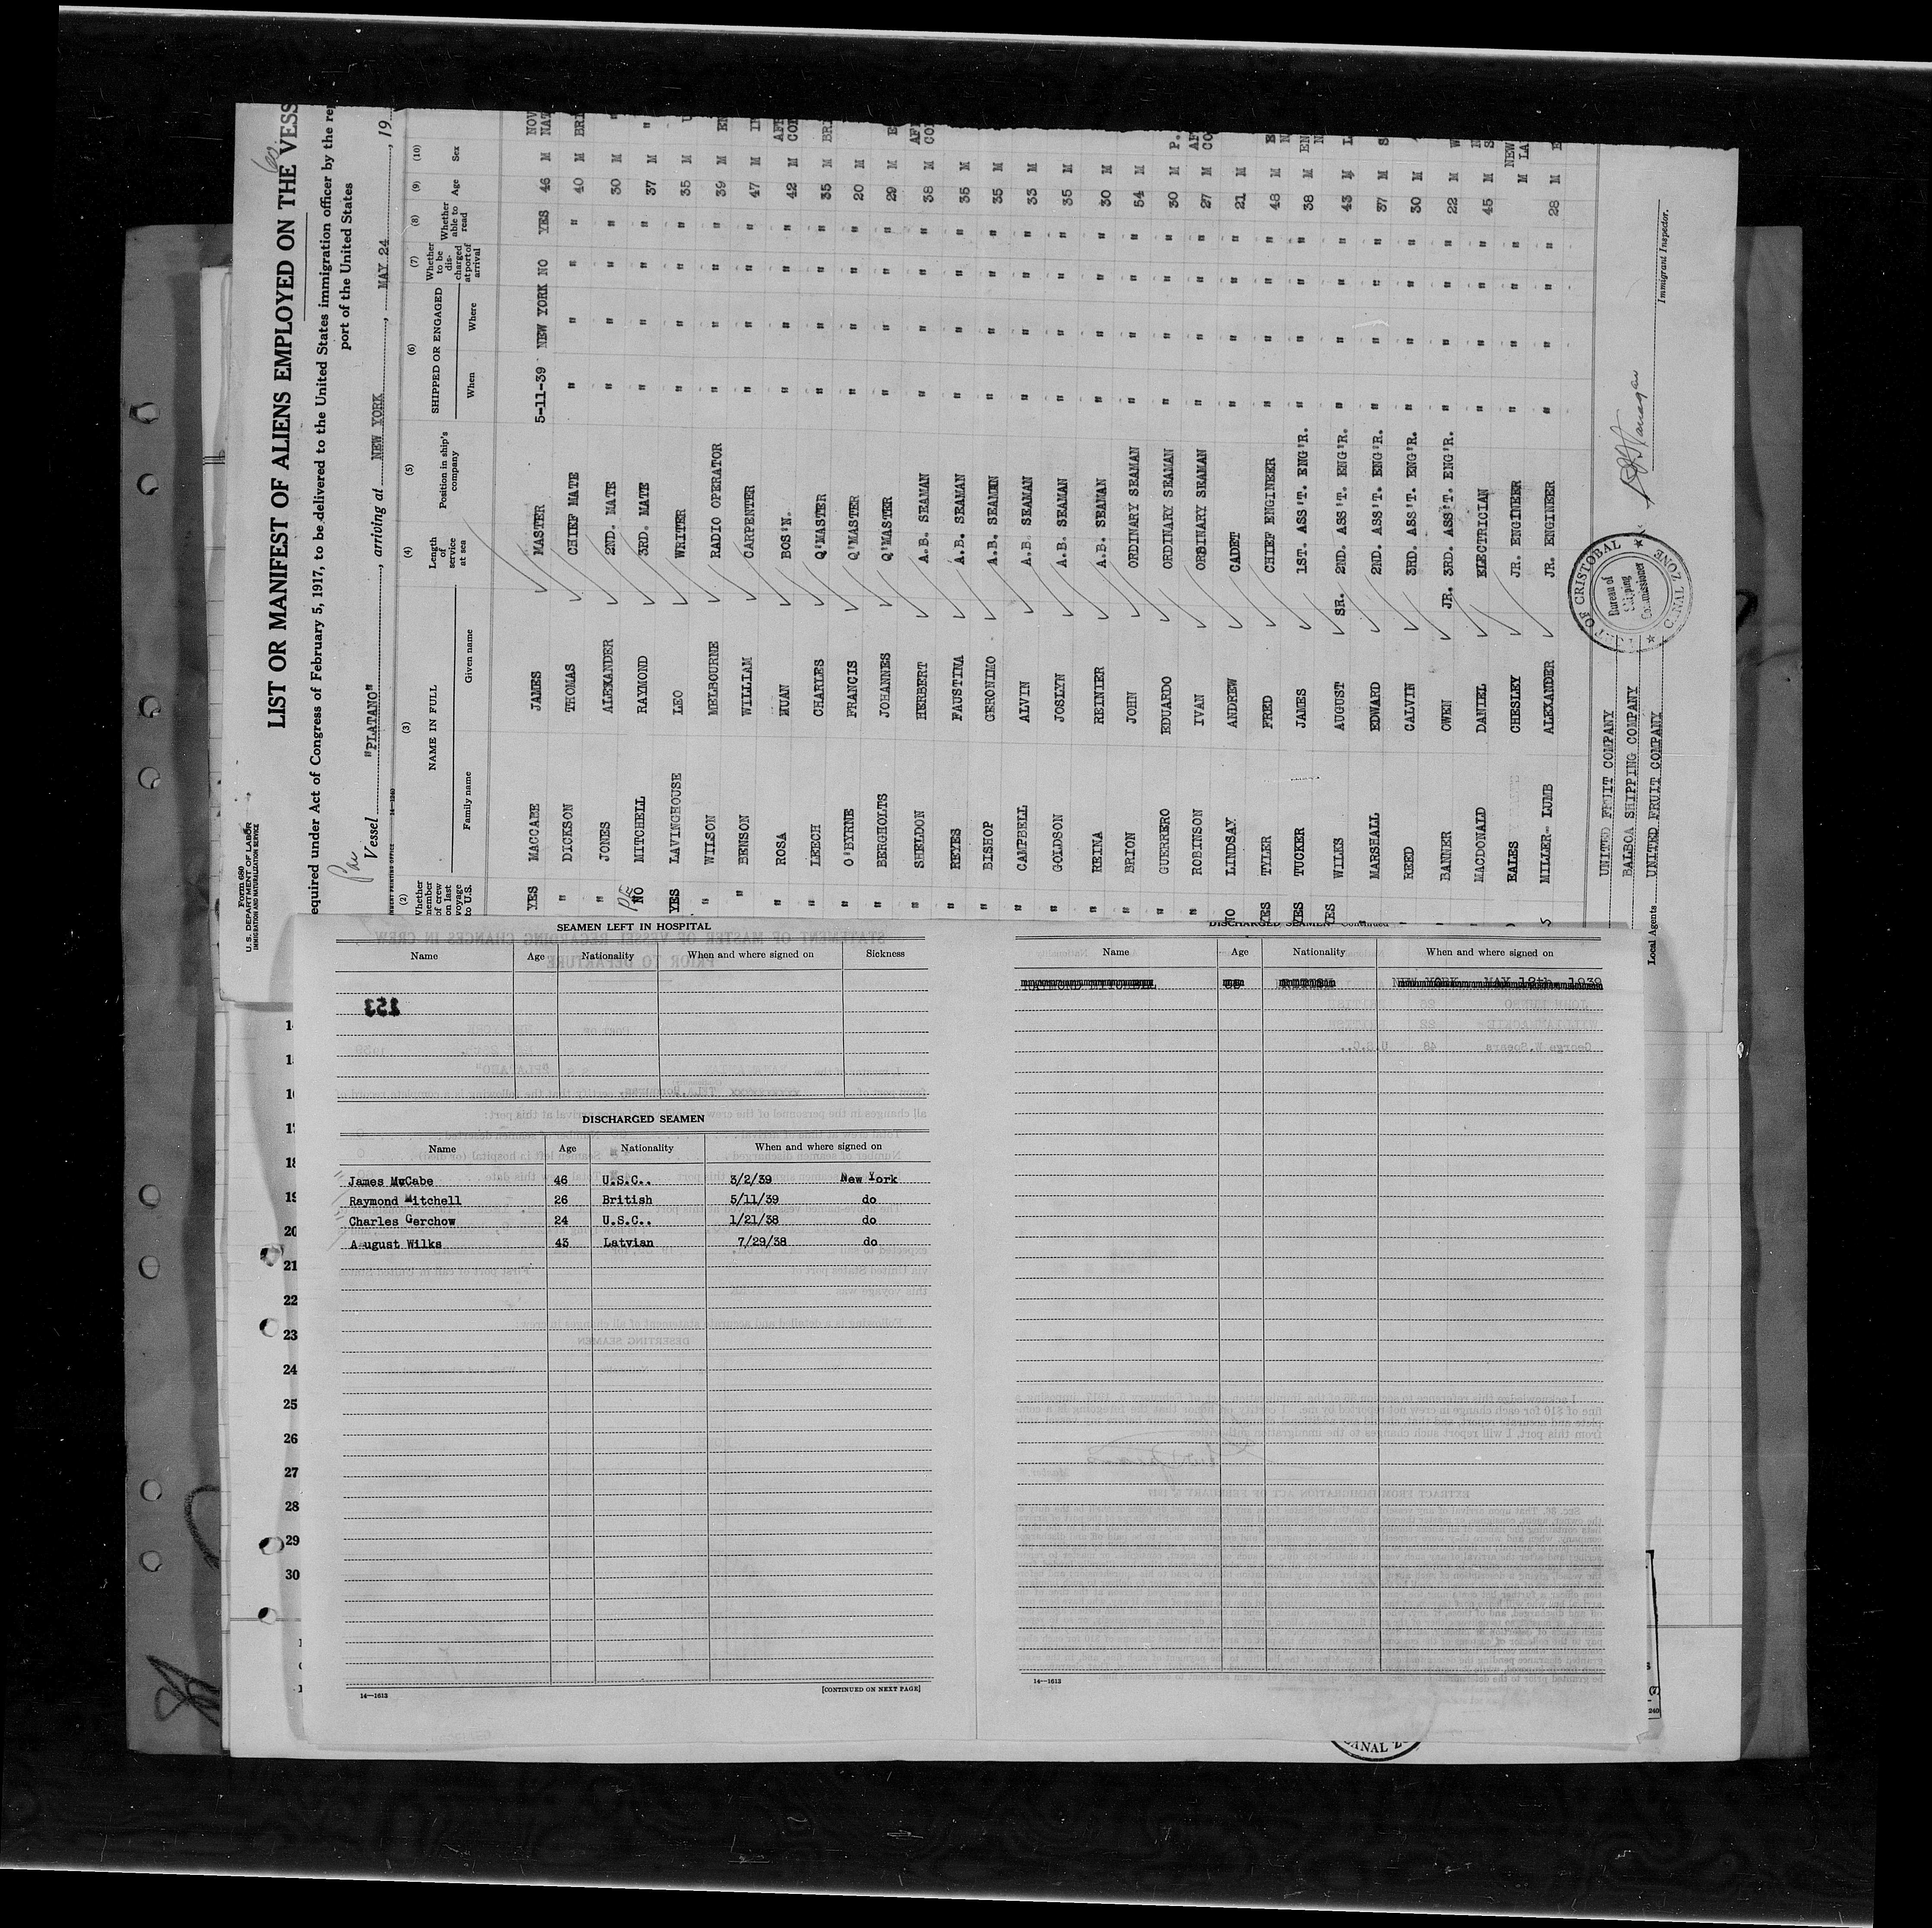 Form 680
U. S. DEPARTMENT OF LABOR
IMMIGRATION AND NATURALIZATION SERVICE
LIST OR MANIFEST OF ALIENS EMPLOYED ON THE VESS
equired under Act of Congress of February 5, 1917, to be delivered to the United States immigration officer by the re
port of the United States
Vessel "PLATANO", arriving at NEW YORK, MAY 24, 19
(2) (3) (4) (5) (6) (7) (8) (9) (10)
Whether member of crew on last voyage to U.S. NAME IN FULL Length of service at sea Position in ship's company SHIPPED OR ENGAGED Whether to be discharged at port of arrival Whether able to read Age Sex
Family name Given name When Where
YES MACCABE JAMES MASTER 5-11-39 NEW YORK NO YES 46 M
" DICKSON THOMAS CHIEF MATE " " " " 40 M
" JONES ALEXANDER 2ND. MATE " " " " 30 M
NO MITCHELL RAYMOND 3RD. MATE " " " " 37 M
YES LAVINGHOUSE LEO WRITER " " " " 35 M
" WILSON MELBOURNE RADIO OPERATOR " " " " 39 M
" BENSON WILLIAM CARPENTER " " " " 47 M
" ROSA BOS'N. " " " " 42 M
" LEECH CHARLES Q'MASTER " " " " 35 M
" O'BYRNE FRANCIS Q'MASTER " " " " 20 M
" BERGHOLTS JOHANNES Q'MASTER " " " " 29 M
" SHELDON HERBERT A.B. SEAMAN " " " " 38 M
" REYES FAUSTINA A.B. SEAMAN " " " " 35 M
" BISHOP GERONIMO A.B. SEAMAN " " " " 35 M
" CAMPBELL ALVIN A.B. SEAMAN " " " " 33 M
" GOLDSON JOSLYN A.B. SEAMAN " " " " 35 M
" REINA REINIER A.B. SEAMAN " " " " 30 M
" BRION JOHN ORDINARY SEAMAN " " " " 54 M
" GUERRERO EDUARDO ORDINARY SEAMAN " " " " 30 M
" ROBINSON IVAN ORDINARY SEAMAN " " " " 27 M
NO LINDSAY ANDREW CADET " " " " 21 M
YES TYLER FRED CHIEF ENGINEER " " " " 48 M
YES TUCKER JAMES 1ST. ASS'T. ENG'R. " " " " 38 M
YES WILKS AUGUST SR. 2ND. ASS'T. ENG'R. " " " " 43 M
" MARSHALL EDWARD 2ND. ASS'T. ENG'R. " " " " 37 M
REED CALVIN 3RD. ASS'T. ENG'R. " " " " 30 M
BANNER OWEN JR. 3RD. ASS'T. ENG'R. " " " " 22 M
MACDONALD DANIEL ELECTRICIAN " " " " 45 M
EALES CHESLEY JR. ENGINEER " " " " M
MILLER- LUMB ALEXANDER JR. ENGINEER " " " " 28 M
UNITED FRUIT COMPANY
BALBOA SHIPPING COMPANY
Local Agents UNITED FRUIT COMPANY
Immigrant Inspector.
PORT OF CRISTOBAL
Bureau of Shipping Commissioner
CANAL ZONE
SEAMEN LEFT IN HOSPITAL
Name Age Nationality When and where signed on Sickness
253
DISCHARGED SEAMEN
Name Age Nationality When and where signed on
James McCabe 46 U.S.C.. 3/2/39 New York
Raymond Mitchell 26 British 5/11/39 do
Charles Gerchow 24 U.S.C.. 1/21/38 do
August Wilks 43 Latvian 7/29/38 do
14—1612
[CONTINUED ON NEXT PAGE]
DISCHARGED SEAMEN—Continued
Name Age Nationality When and where signed on
RAYMOND MITCHELL NEW YORK MAY 12th 1939
14—1612
14
15
16
17
18
19
20
21
22
23
24
25
26
27
28
29
30
CANAL ZO